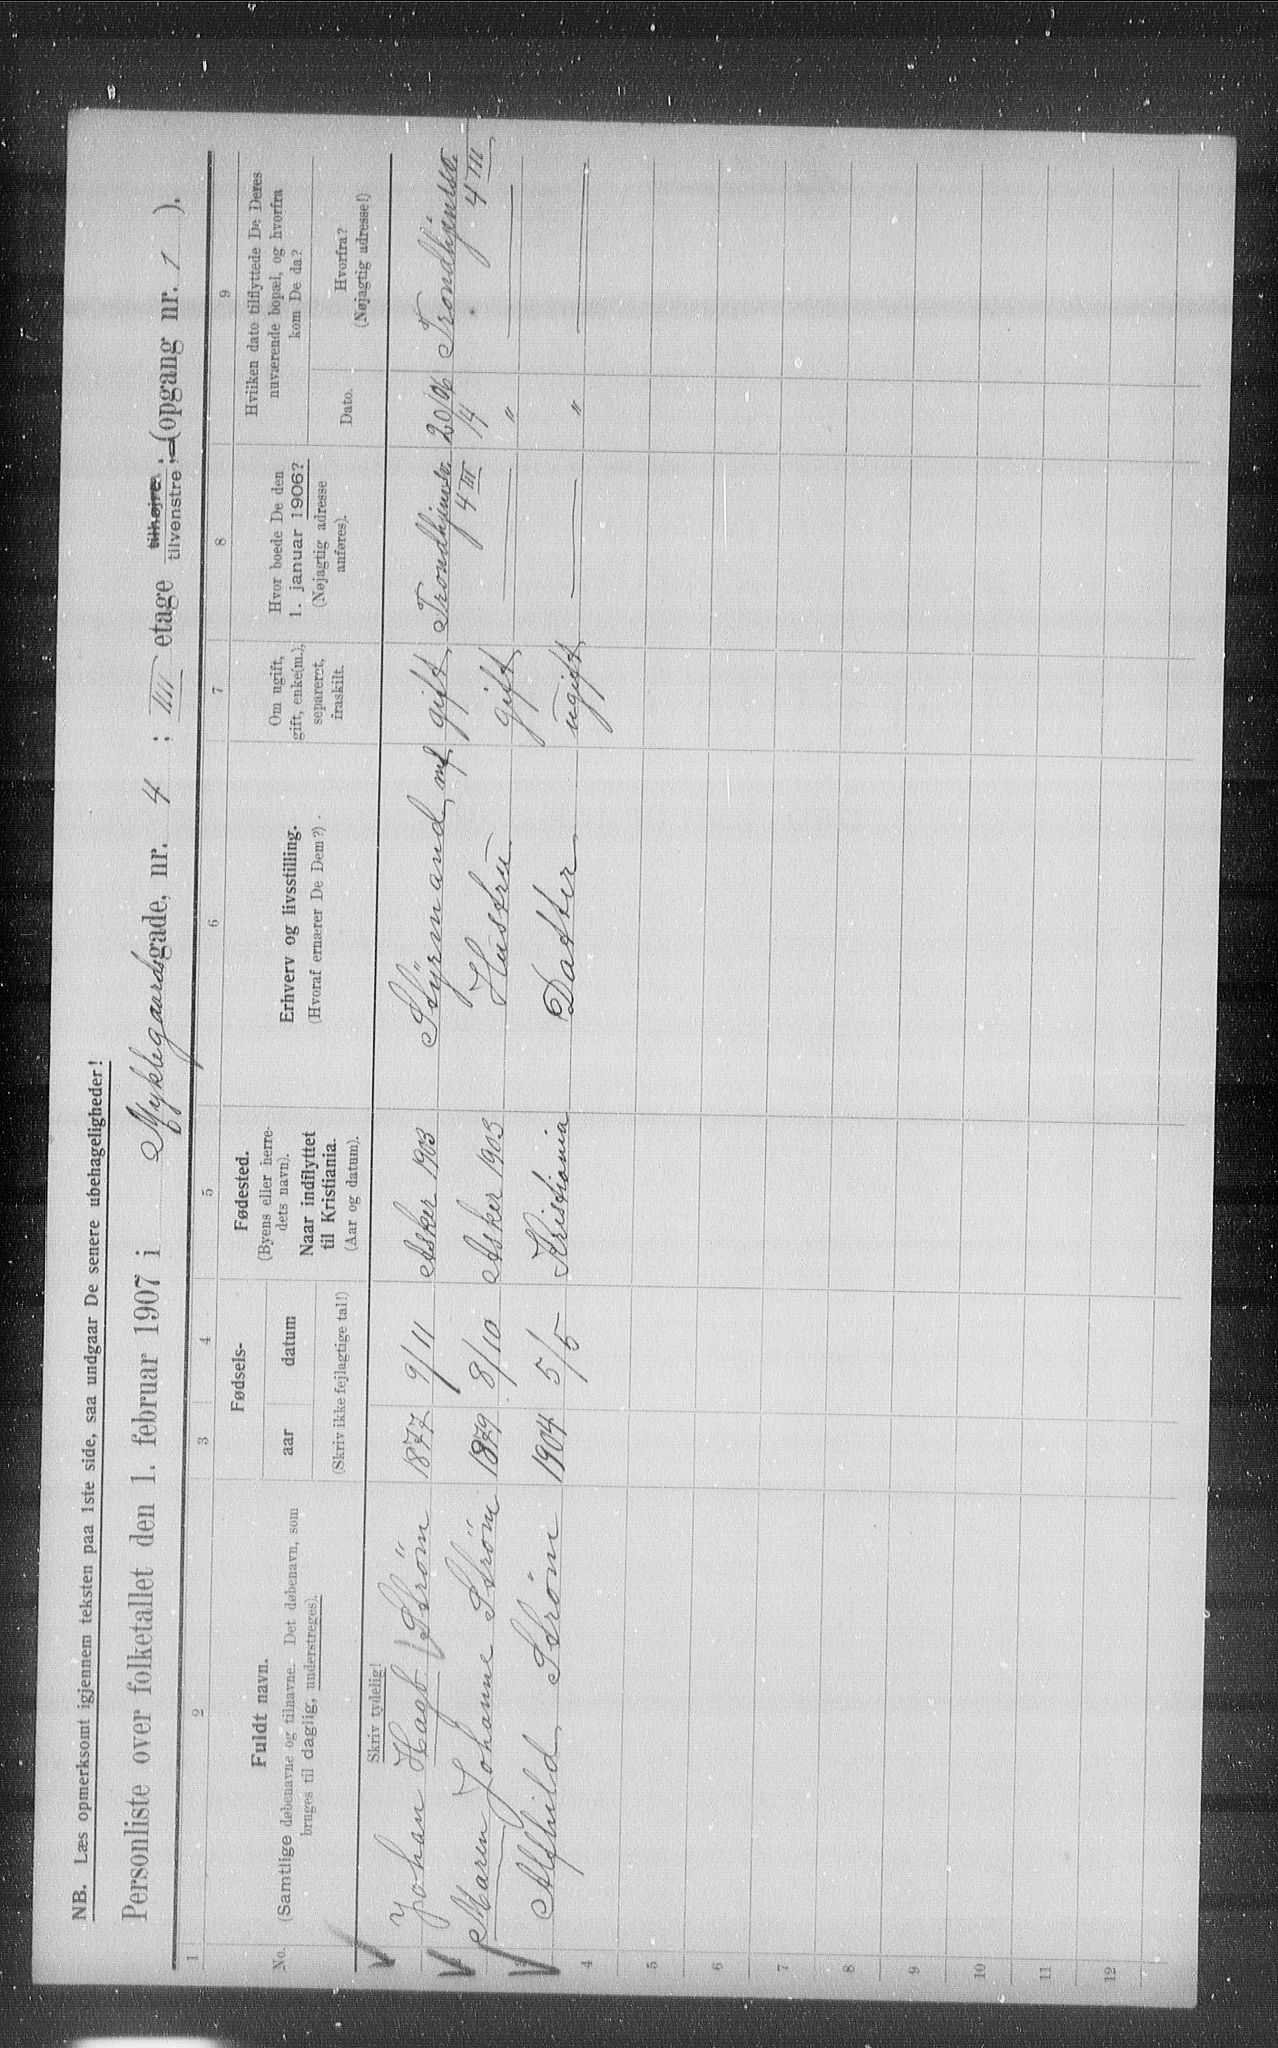 NB. Læs opmerksomt igjennem teksten paa 1ste side, saa undgaar De senere ubehageligheder!
Personliste over folketallet den 1. februar 1907 i Myklegaardsgade, nr. 4 ; III etage tilhøjre tilvenstre ; (opgang nr. 1 ).
1 2 3 4 5 6 7 8 9
No.
Fuldt navn.
(Samtlige døbenavne og tilnavne. Det døbenavn, som
bruges til daglig, understreges).
Skriv tydelig!
Fødsels-
aar datum
(Skriv ikke fejlagtige tal!)
Fødested.
(Byens eller herre-
dets navn).
Naar indflyttet
til Kristiania.
(Aar og datum).
Erhverv og livsstilling.
(Hvoraf ernærer De Dem?)
Om ugift,
gift, enke(m.),
separeret,
fraskilt.
Hvor boede De den
1. januar 1906?
(Nøjagtig adresse
anføres).
Hviiken dato tilflyttede De Deres
nuværende bopæl, og hvorfra
kom De da?
Dato.
Hvorfra?
(Nøjagtig adresse!)
Johan Hagb Strøm 1877 9/11 Asker 1903 Styrmand gift Trondhjemsv. 4 III 20/14 06 Trondhjemsv. 4 III
Maren Johanne Strøm 1879 8/10 Asker 1903 Hustru gift — " —
3 Alfhild Strøm 1904 5/5 Kristiania Datter ugift — " —
4
5
6
7
8
9
10
11
12